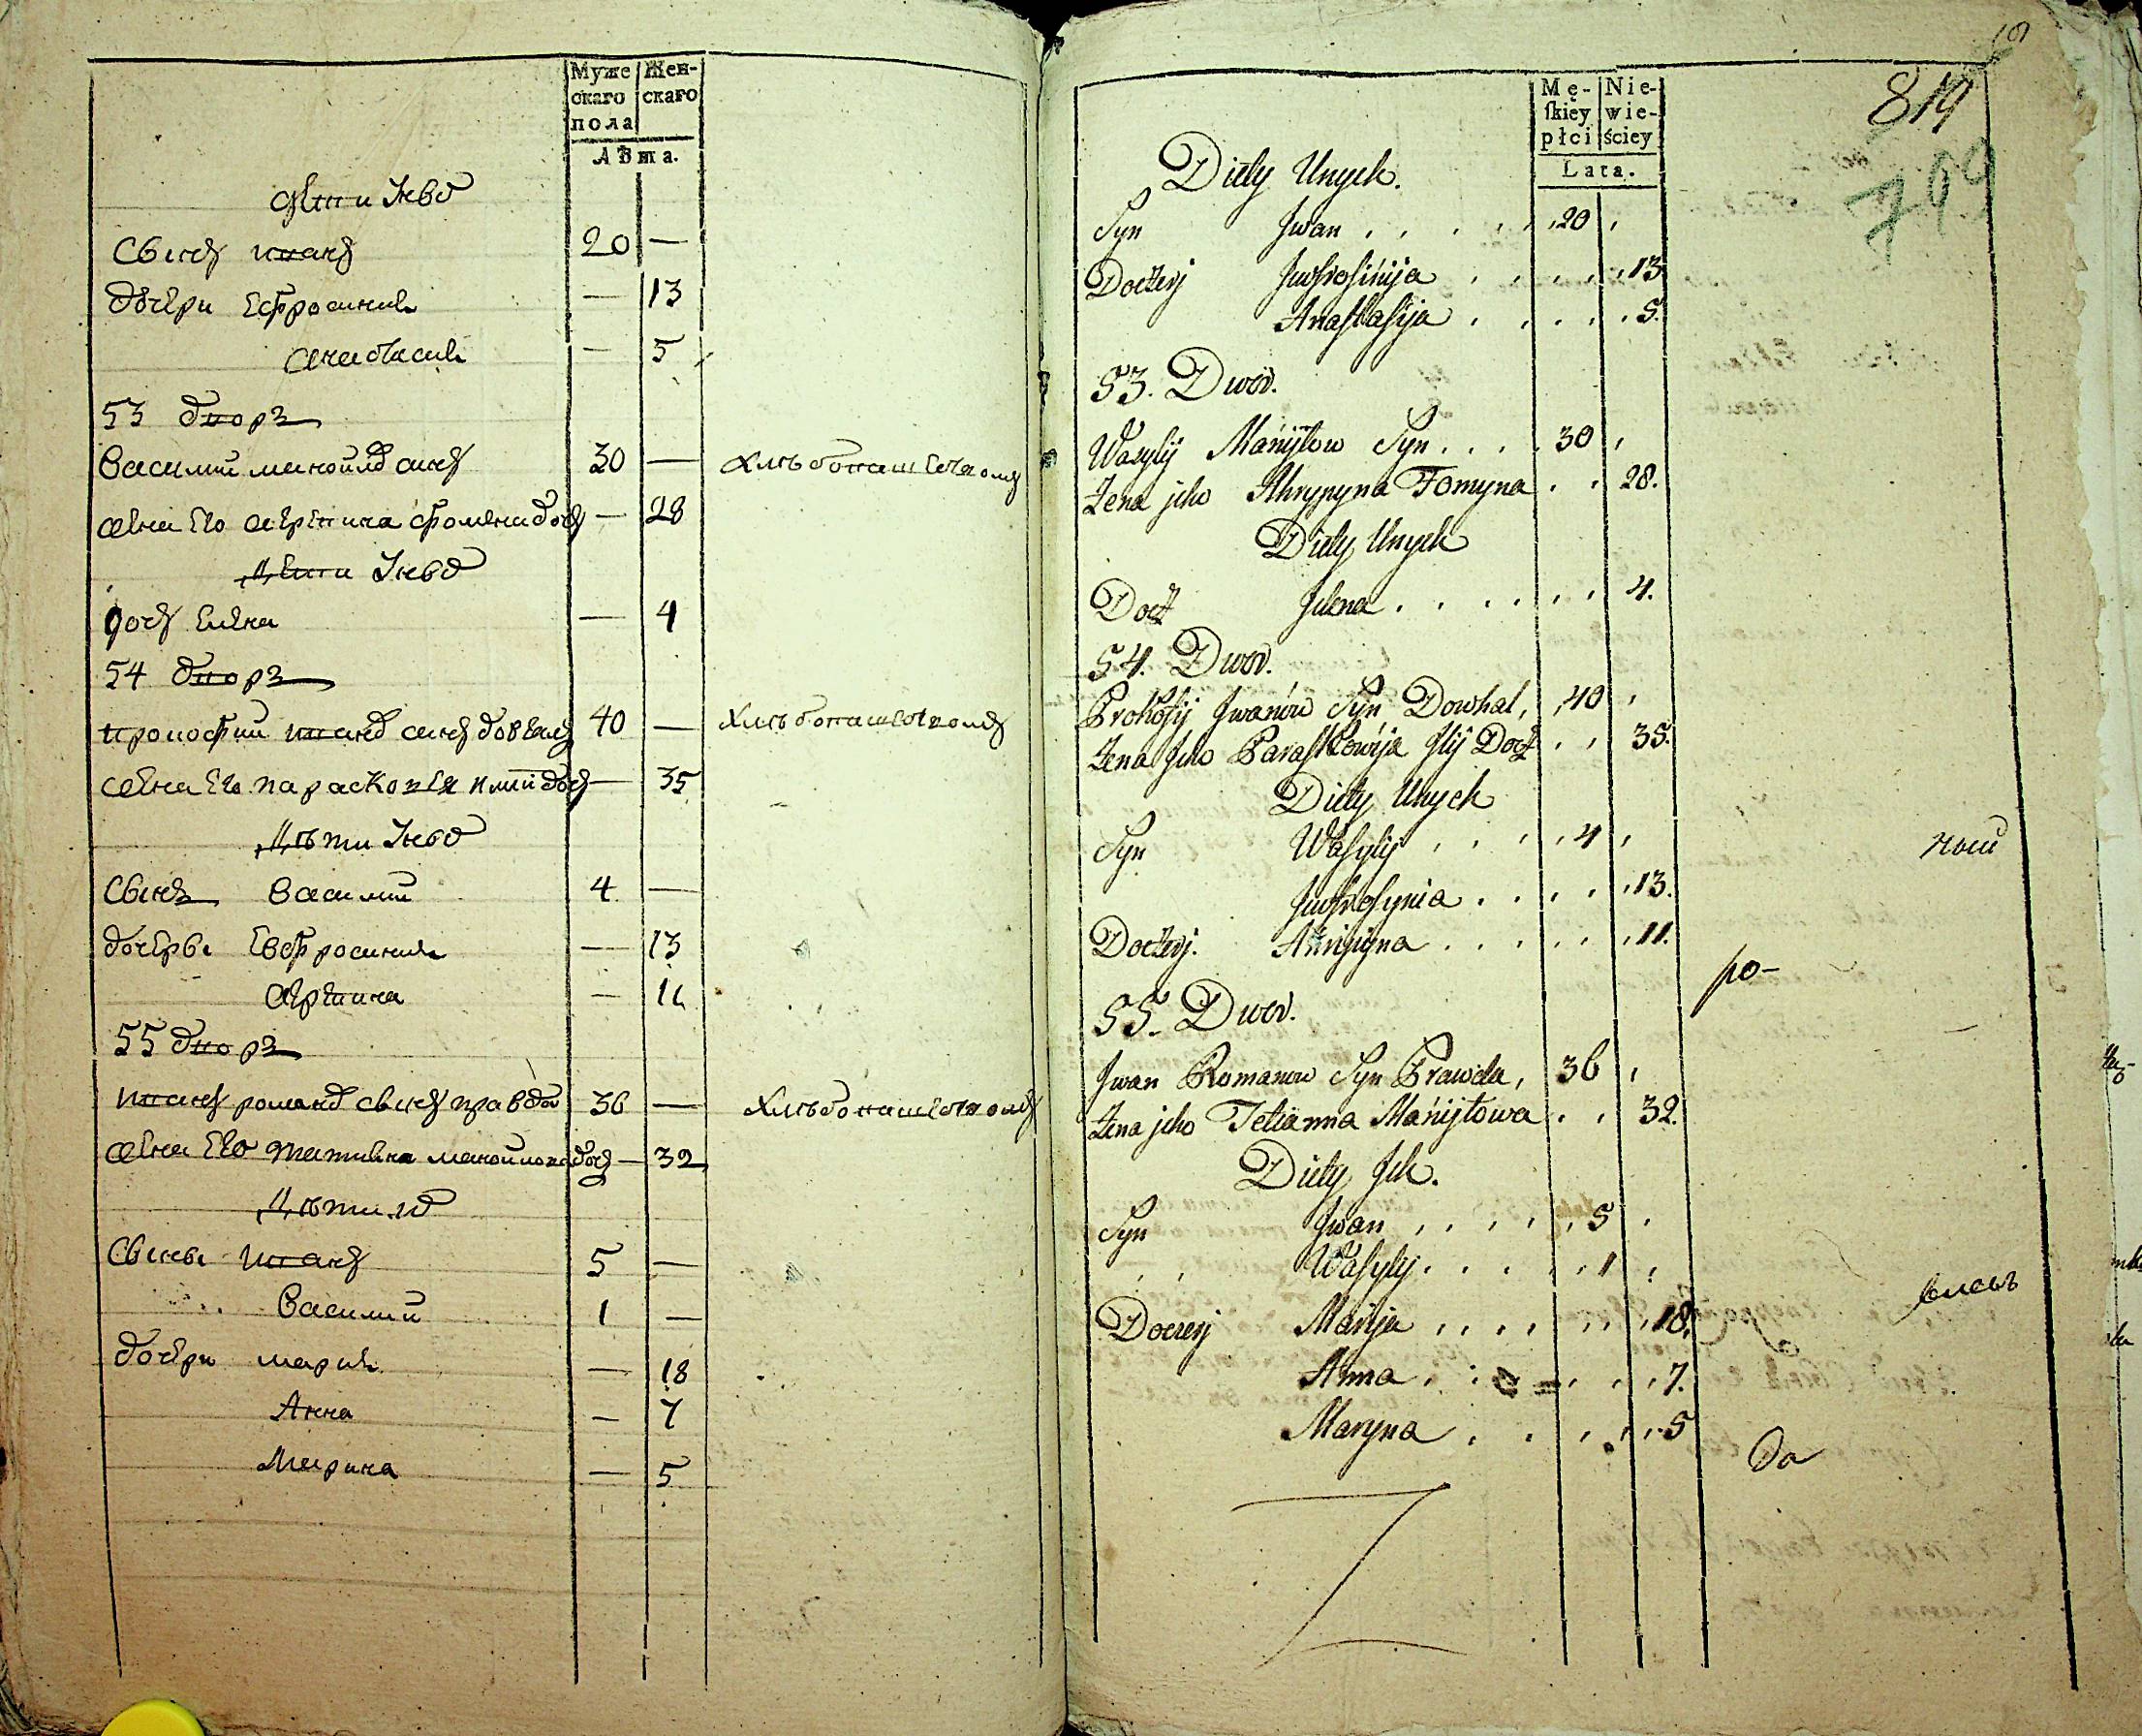 Муже Жен-
скаго скаго
пола
Лѣта.
Дети Ихъ
Сынъ иванъ 20 —
дочери Ефросиния — 13
анастасия — 5
53 дворъ
Василий манойловъ сынъ 30 — хлебопашествомъ
жена Его агрепина фомена дочь — 28
дети Ихъ
дочь Елена — 4
54 дворъ
прокофий ивановъ сынъ довгаль 40 — хлебопашествомъ
жена Его парасковия илии дочь — 35
дѣти Ихъ
Сынъ Василий 4 —
дочеры Евфросиния — 13
агрепина — 11
55 дворъ
иванъ романовъ сынъ правда 36 — хлебопашествомъ
жена Его татияна манойлова дочь — 32
дѣти их
Сыны иванъ 5 —
Василий 1 —
дочери мария — 18
Анна — 7
Марина — 5
819
Mę- Nie-
ſkiey wie-
płci ściey
Lata.
Diety Unych.
Syn Jwan 20
Doczery Jwfrosinija 13
Anastasija 5.
53. Dwor.
Wasylij Manyłow Syn 30
Żena jeho Ahrypyna Fomyna 28.
Diety Unych
Docz Jelena 4.
54. Dwor.
Prokofij Jwanow Syn Dowhal, 40
Żena Jeho Paraskowija Jlij Docz 35.
Diety Unych
Syn Wasylij 4
Jwfrosynia 13.
Doczery. Ahripyna 11.
55. Dwor.
Jwan Romanow Syn Prawda, 36
Żena jeho Tetianna Manijłowa 32.
Diety Jch.
Syn Jwan 5
Wasylij 1
Doczery Marija 18.
Anna 7.
Maryna 5
ро-
да